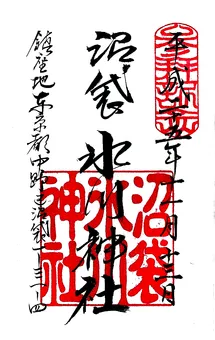 平成二十五年十一月十三日
沼袋 氷川神社
鎮座地東京都中野区沼袋一ー三一ー四
沼袋
氷川
神社